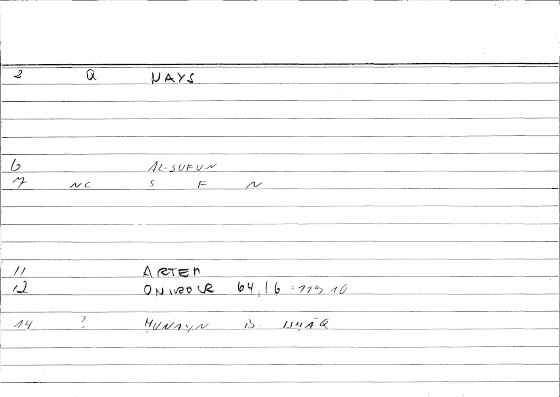 2 Q NAYS
6 AL-SUFUN
7 NC S F N
11 ARTEM
12 ONIROCR 64,16 = 119,10
14 ? ḤUNAYN B. ISḤĀQ